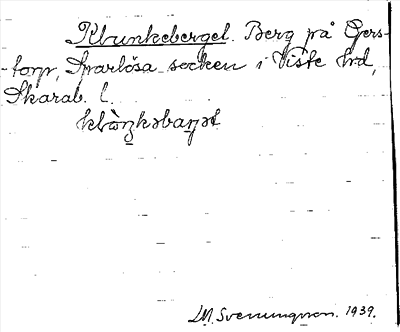 Klunkeberget. Berg på Gers-
-torp, Sparlösa socken i Viste hrd,
Skarab. l.
LM. Svenungsson. 1939.